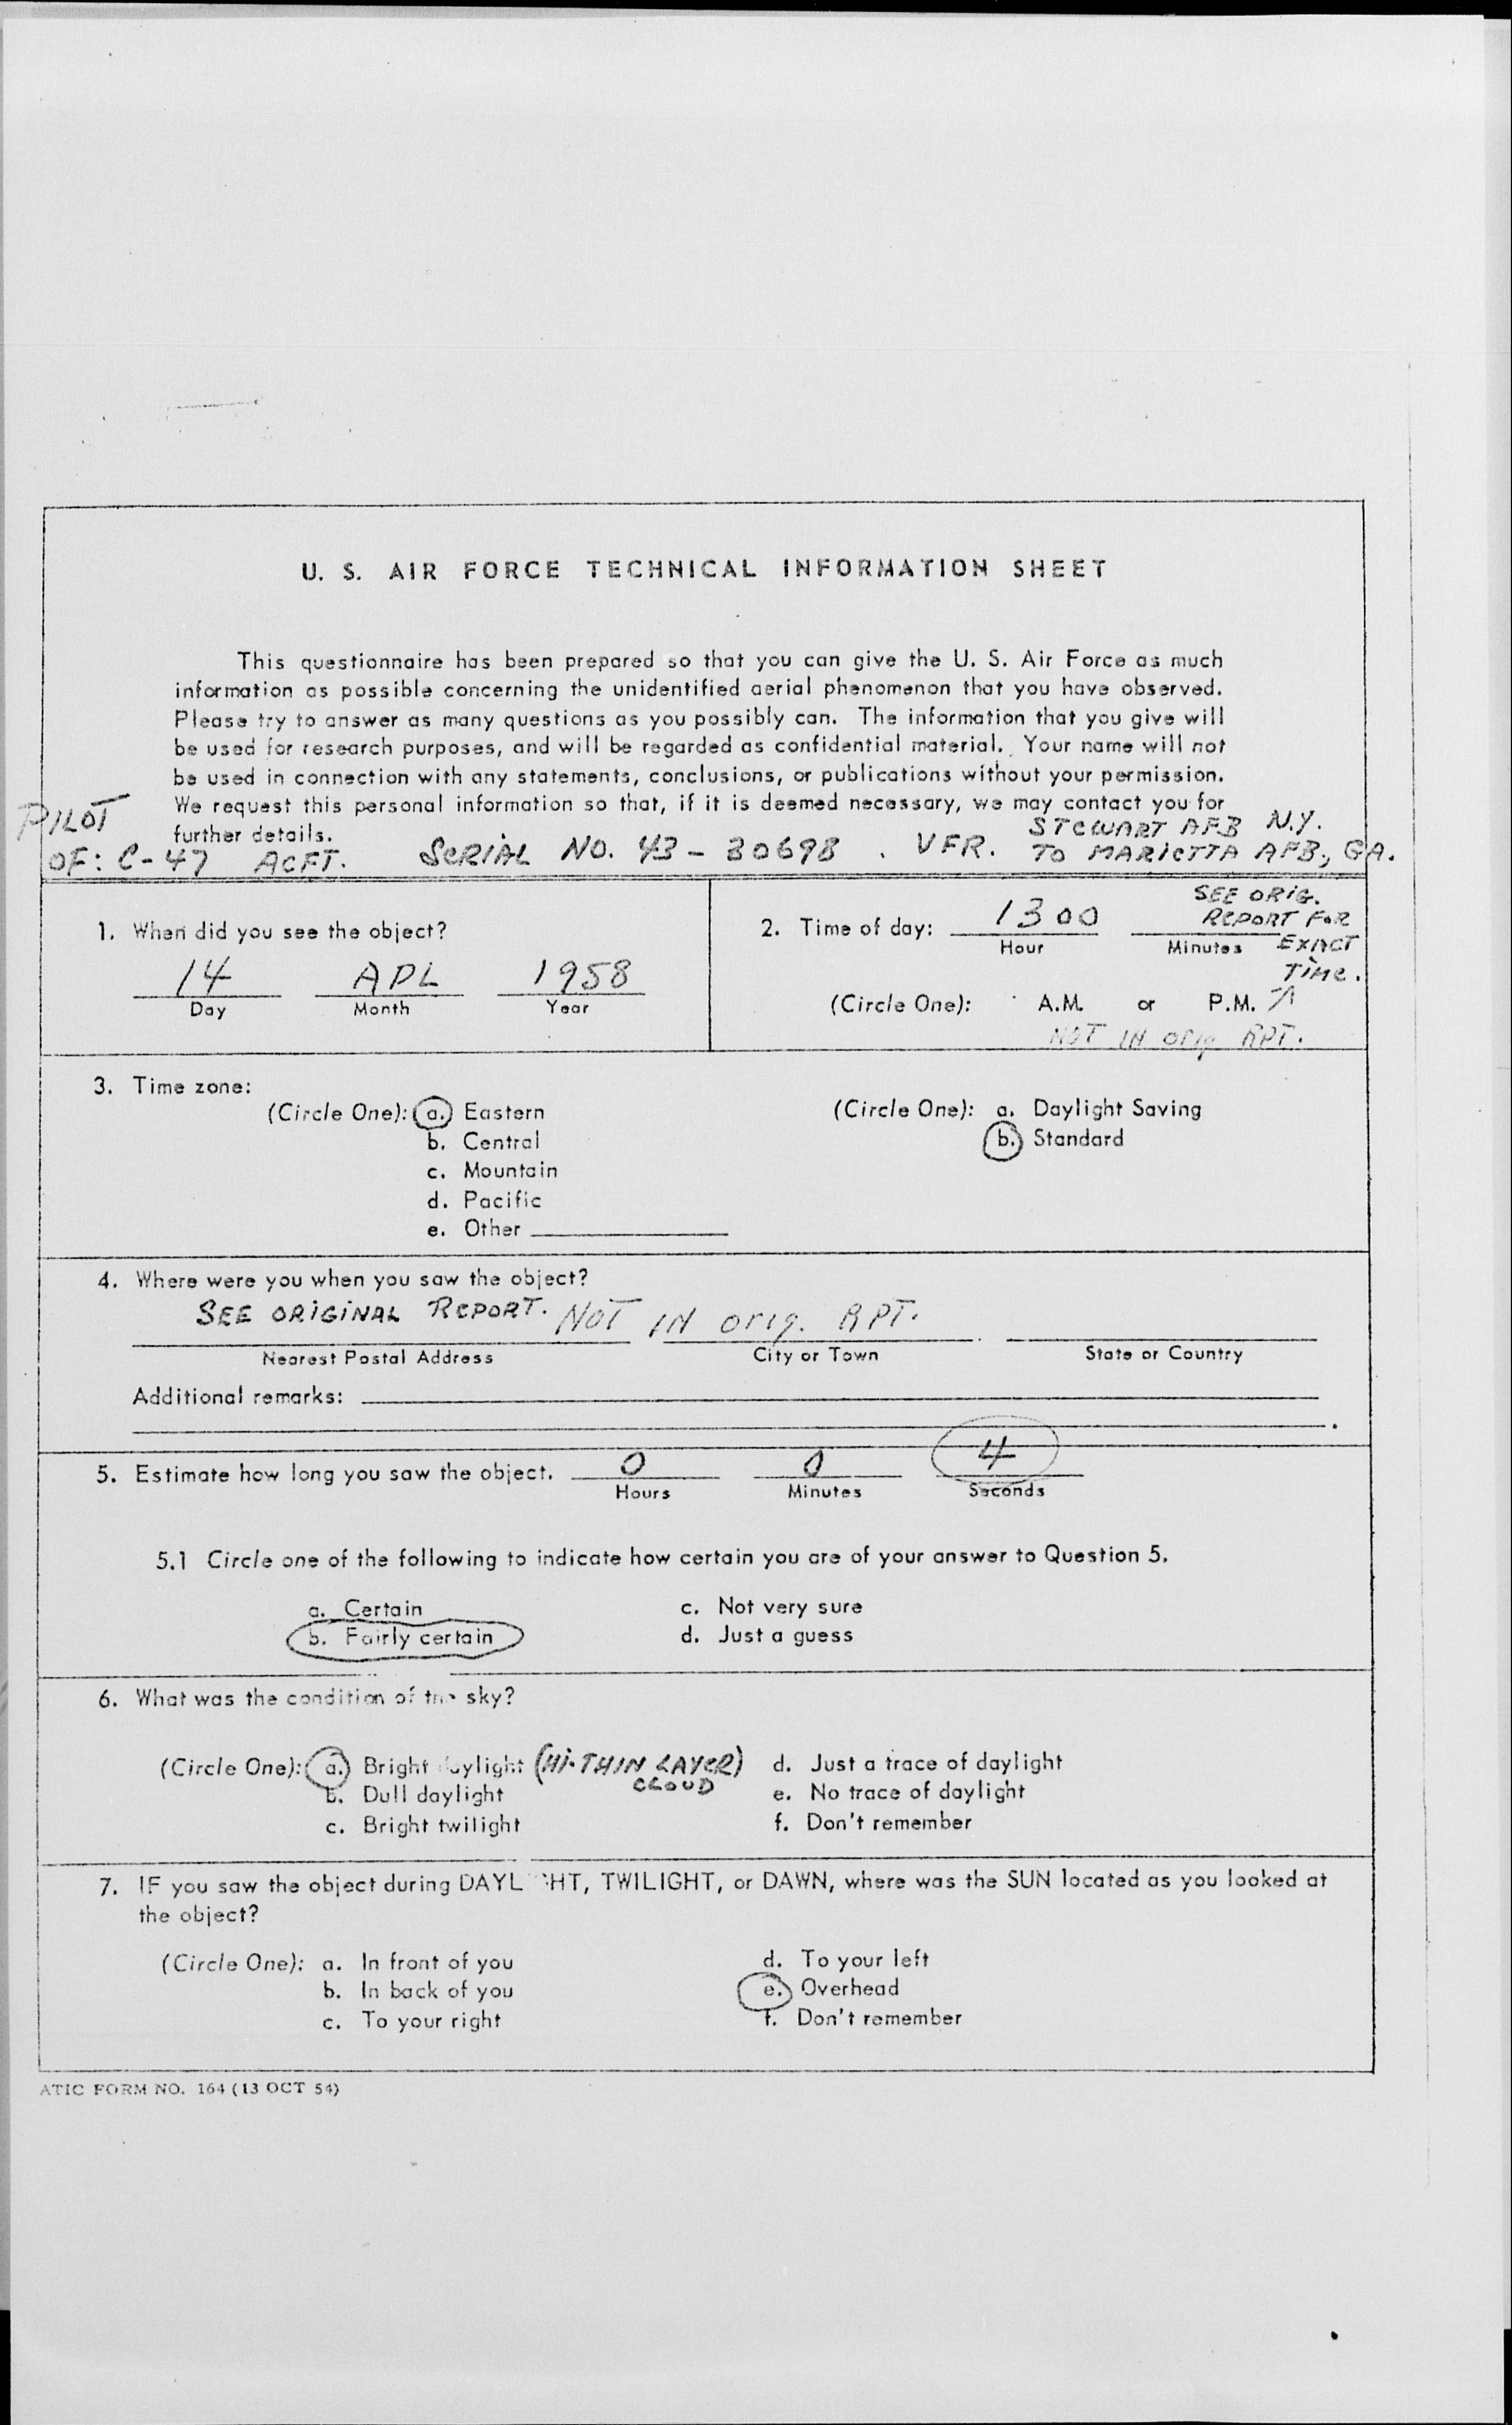 U. S. AIR FORCE TECHNICAL INFORMATION SHEET
This questionnaire has been prepared so that you can give the U. S. Air Force as much
information as possible concerning the unidentified aerial phenomenon that you have observed.
Please try to answer as many questions as you possibly can. The information that you give will
be used for research purposes, and will be regarded as confidential material. Your name will not
be used in connection with any statements, conclusions, or publications without your permission.
We request this personal information so that, if it is deemed necessary, we may contact you for
further details.
PILOT
OF: C-47 ACFT. SERIAL NO. 43-30698. VFR. STEWART AFB N.Y.
TO MARIETTA AFB, GA.
1. When did you see the object?
14 APL 1958
Day Month Year
2. Time of day: 1300
Hour Minutes
SEE ORIG.
REPORT FOR
EXACT
TIME.
(Circle One): A.M. or P.M.
NOT IN orig RPT.
3. Time zone:
(Circle One): a. Eastern
b. Central
c. Mountain
d. Pacific
e. Other
(Circle One): a. Daylight Saving
b. Standard
4. Where were you when you saw the object?
SEE ORIGINAL REPORT. NOT IN orig. RPT.
Nearest Postal Address City or Town State or Country
Additional remarks:
5. Estimate how long you saw the object. 0 0 4
Hours Minutes Seconds
5.1 Circle one of the following to indicate how certain you are of your answer to Question 5.
a. Certain
b. Fairly certain
c. Not very sure
d. Just a guess
6. What was the condition of the sky?
(Circle One): a. Bright daylight (HI-THIN LAYER)
CLOUD
b. Dull daylight
c. Bright twilight
d. Just a trace of daylight
e. No trace of daylight
f. Don't remember
7. IF you saw the object during DAYLIGHT, TWILIGHT, or DAWN, where was the SUN located as you looked at
the object?
(Circle One): a. In front of you
b. In back of you
c. To your right
d. To your left
e. Overhead
f. Don't remember
ATIC FORM NO. 164 (13 OCT 54)